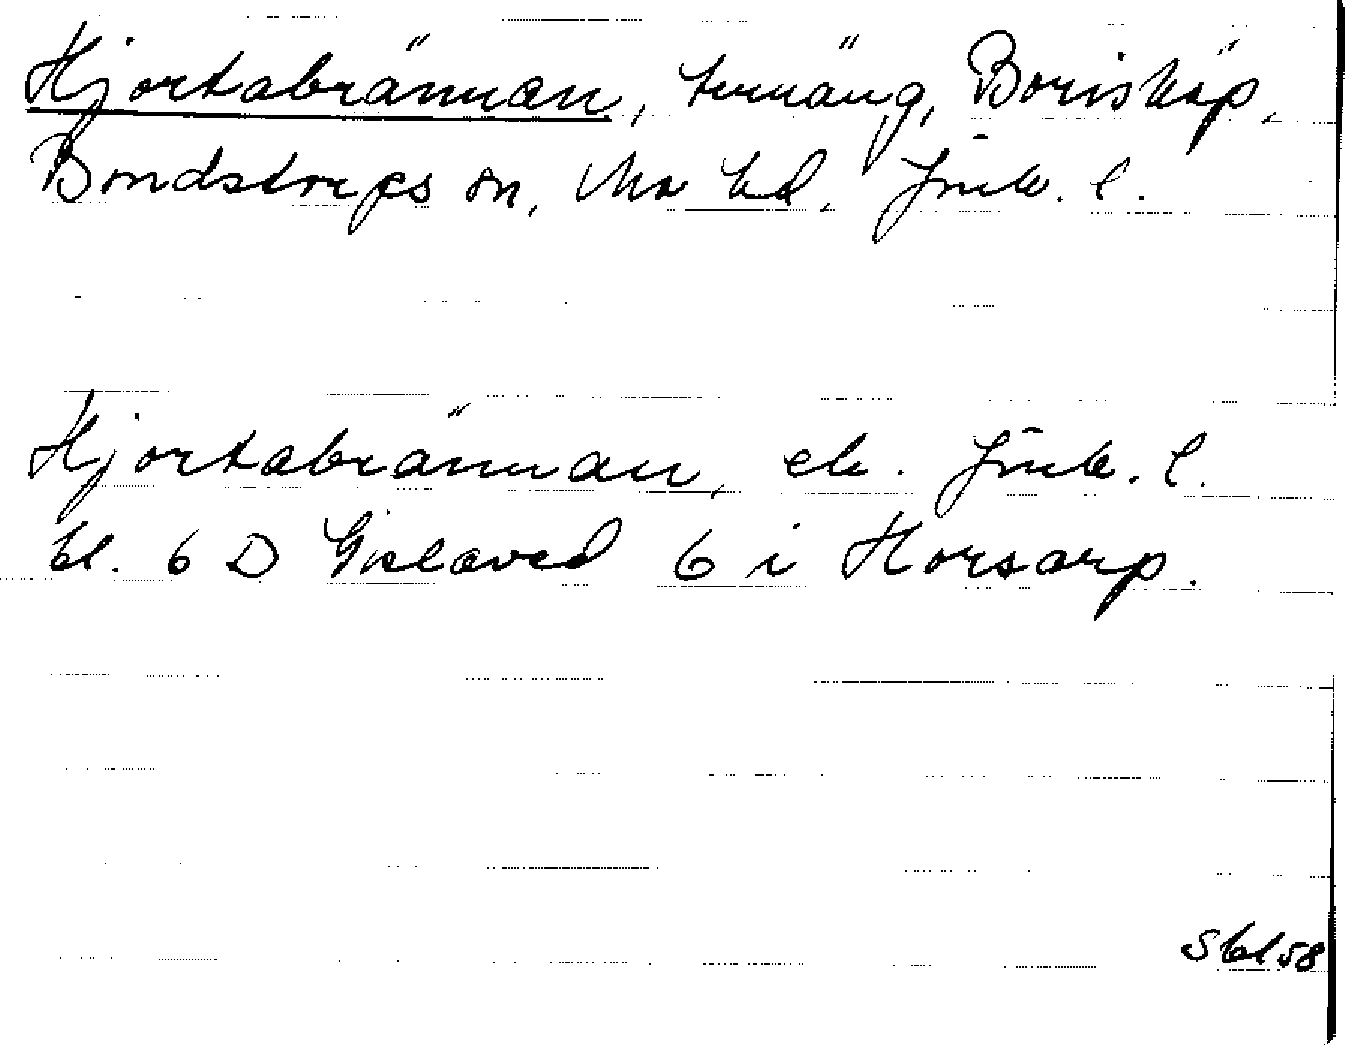 Hjortabrännan, terräng, Borisköp,
Bondstorps sn, Mo hd, Jönk. l.
Hjortabrännan, ek. Jönk. l.
bl. 6 D Gislaved 6 i Horsarp.
Sbl 58